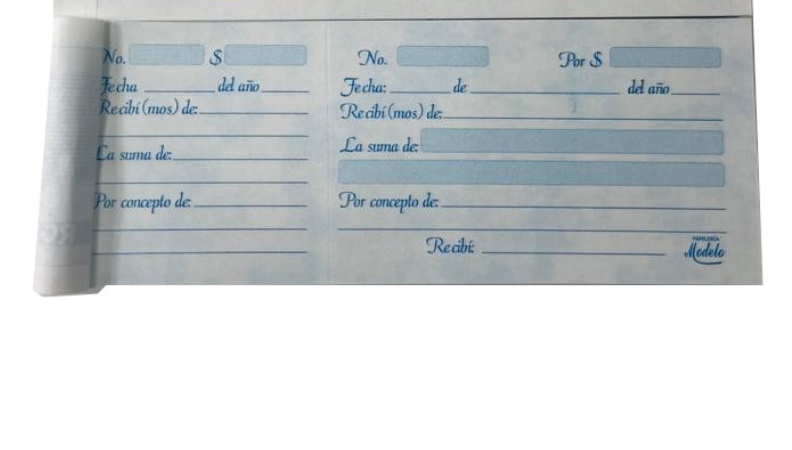 No. $
Fecha ________ del año ______
Recibí (mos) de:
La suma de:
Por concepto de:
No. Por $
Fecha: ________ de ____________________ del año ______
Recibí (mos) de:
La suma de:
Por concepto de:
Recibí:
PAPELERÍA
Modelo